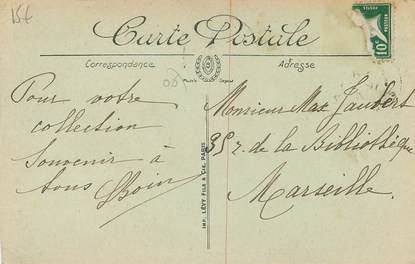 15€
Carte Postale
Correspondance
Adresse
10
Pour votre
collection
Souvenir à
tous
Monsieur Max Jaubert
35 r. de la Bibliothèque
Marseille.
IMP. LÉVY FILS & CIE, PARIS